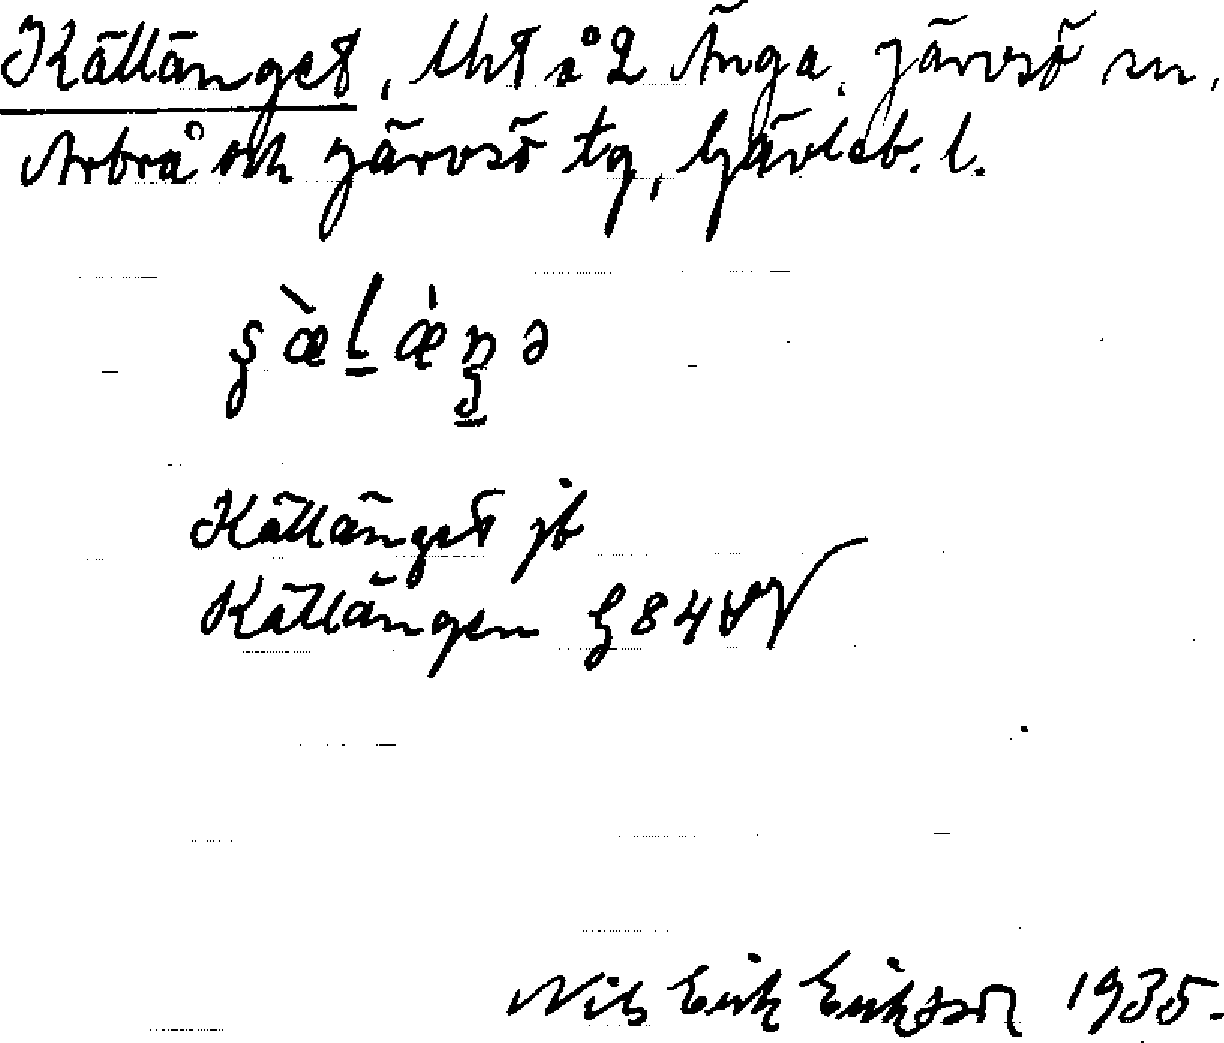 Källänget, lht å 2 Änga, Järvsö sn,
Arbrå och Järvsö tg, Gävleb. l.
Källänget jb
Källängen G 84 SV
Nils Erik Eriksson 1935.